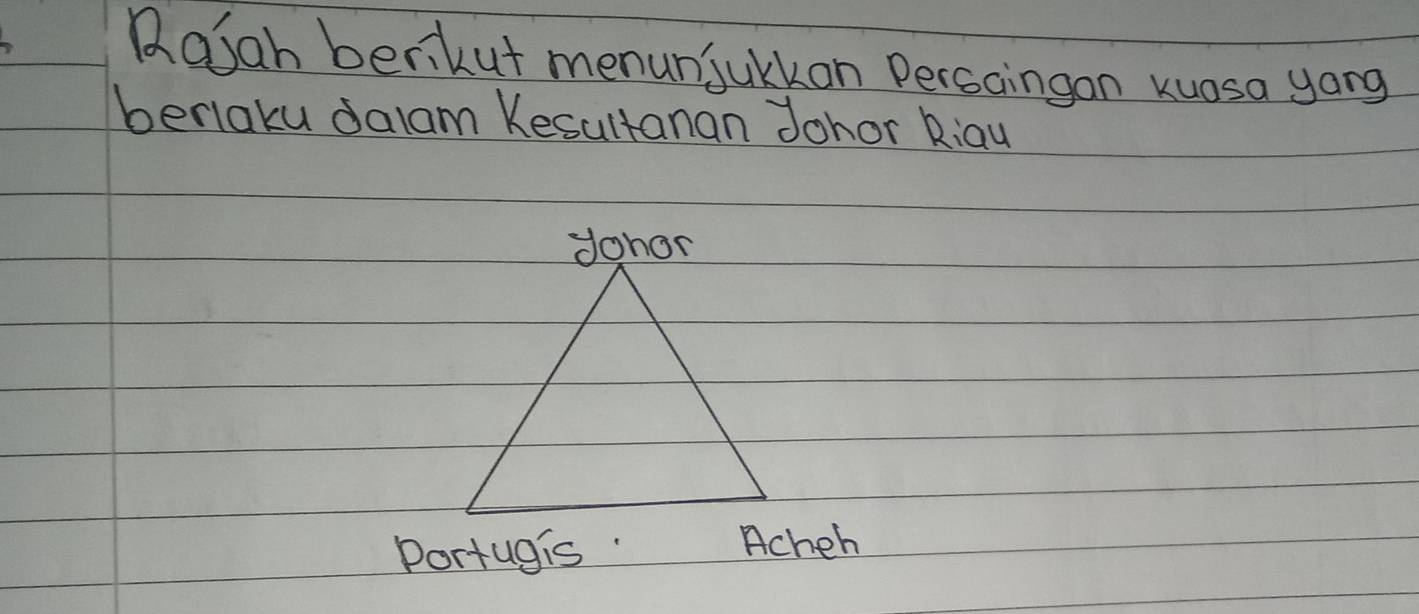 Rajah berikut menunjukkan Persaingan kuasa yang
berlaku dalam Kesultanan Johor Riau
Johor
Portugis. Acheh